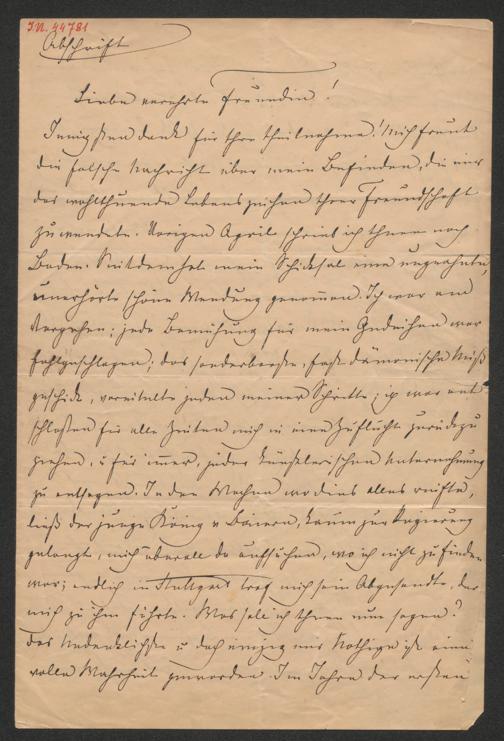 I.N. 44781
Abschrift
Liebe verehrte Freundin!
Innigsten dank für Ihre theilnahme! Mich freut
die falsche Nachricht über mein Befinden, die mir
das wohlthuende Lebenszeichen Ihrer Freundschaft
zuwendete. Vorigen April schrieb ich Ihnen nach
Baden. Seitdem hat mein Schicksal eine ungeahnte,
unerhörte schöne Wendung genommen. Ich war am
Vergehen; jede Bemühung für mein Gedeihen war
fehlgeschlagen; das sonderbarste, fast dämonische Miß
geschick, vereitelte jeden meiner Schritte; ich war ent
schlossen für alle Zeiten mich in eine Zuflucht zurückzu
ziehen, u für immer, jeder künstlerischen Unternehmung
zu entsagen. In den Wochen wo dies alles reifte,
ließ der junge König v Baiern, kaum zur Regierung
gelangt, mich überall da aufsuchen, wo ich nicht zu finden
war; endlich in Stuttgart traf mich sein Abgesandte, der
mich zu ihm führte. Was soll ich Ihnen nun sagen?
Das Undenklichste u doch einzig mir Nöthige ist eine
volle Wahrheit geworden. Im Jahre der ersten